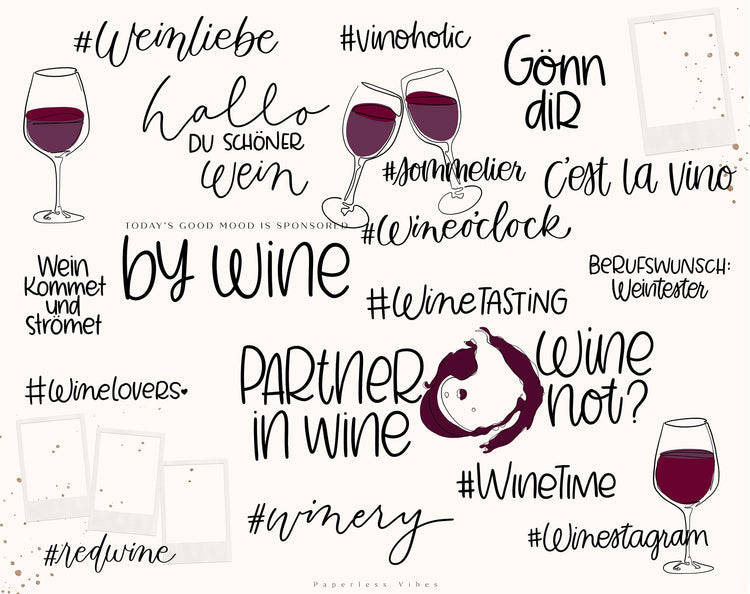 #Weinliebe
#vinoholic
Gönn
dir
hallo
DU SCHÖNER
wein
#sommelier
C'est la vino
TODAY'S GOOD MOOD IS SPONSORED
by wine
#Wineo'clock
Wein
Kommet
und
Strömet
#WineTASTING
BERUFSWUNSCH:
Weintester
PARtneR
in wine
wine
not?
#Winelovers
#WineTime
#winery
#Winestagram
#redwine
Paperless Vibes